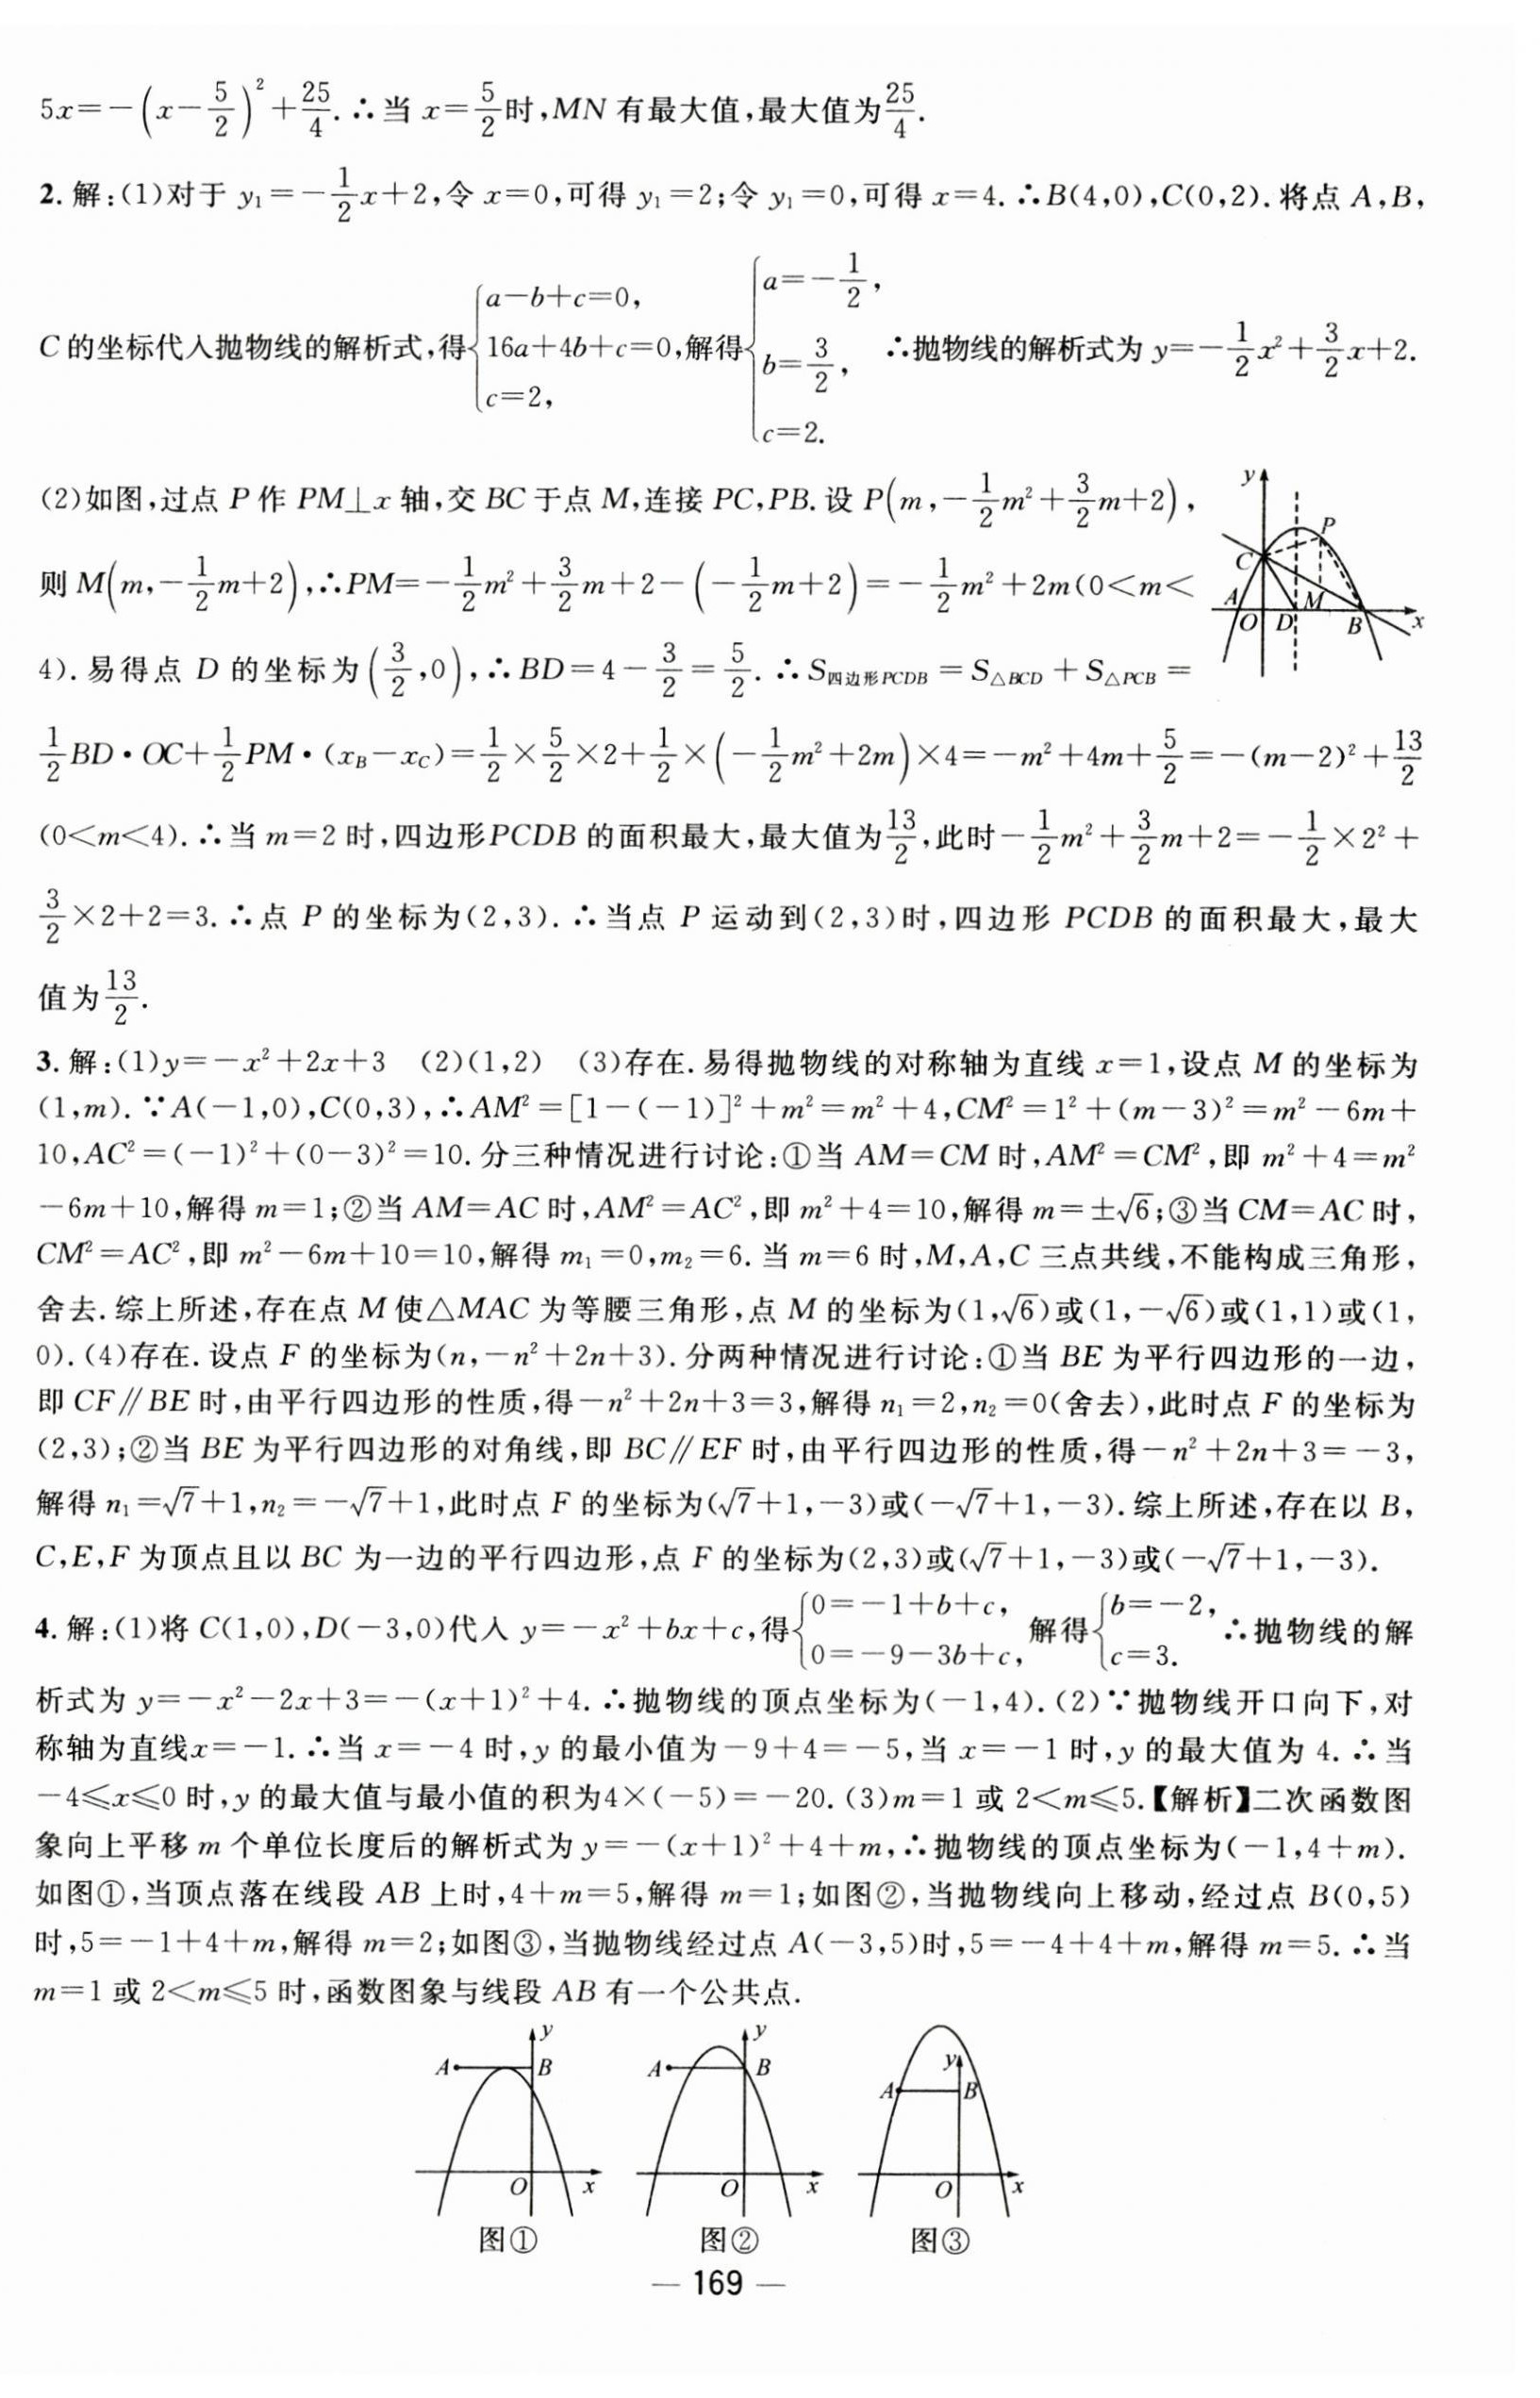 5x=-(x-5/2)²+25/4.∴当 x=5/2时,MN 有最大值,最大值为25/4.
2.解:(1)对于 y₁=-1/2x+2,令 x=0,可得 y₁=2;令 y₁=0,可得 x=4.∴B(4,0),C(0,2).将点 A,B,
C 的坐标代入抛物线的解析式,得{a-b+c=0, 16a+4b+c=0, c=2, 解得{a=-1/2, b=3/2, c=2. ∴抛物线的解析式为 y=-1/2x²+3/2x+2.
(2)如图,过点 P 作 PM⊥x 轴,交 BC 于点 M,连接 PC,PB.设 P(m,-1/2m²+3/2m+2),
则 M(m,-1/2m+2),∴PM=-1/2m²+3/2m+2-(-1/2m+2)=-1/2m²+2m(0<m<
4).易得点 D 的坐标为(3/2,0),∴BD=4-3/2=5/2.∴S四边形PCDB=S△BCD+S△PCB=
y
P
C
A
M
O
D
B
x
1/2BD·OC+1/2PM·(xB-xC)=1/2×5/2×2+1/2×(-1/2m²+2m)×4=-m²+4m+5/2=-(m-2)²+13/2
(0<m<4).∴当 m=2 时,四边形PCDB 的面积最大,最大值为13/2,此时-1/2m²+3/2m+2=-1/2×2²+
3/2×2+2=3.∴点 P 的坐标为(2,3).∴当点 P 运动到(2,3)时,四边形 PCDB 的面积最大,最大
值为13/2.
3.解:(1)y=-x²+2x+3 (2)(1,2) (3)存在.易得抛物线的对称轴为直线 x=1,设点 M 的坐标为
(1,m).∵A(-1,0),C(0,3),∴AM²=[1-(-1)]²+m²=m²+4,CM²=1²+(m-3)²=m²-6m+
10,AC²=(-1)²+(0-3)²=10.分三种情况进行讨论:①当 AM=CM 时,AM²=CM²,即 m²+4=m²
-6m+10,解得 m=1;②当 AM=AC 时,AM²=AC²,即 m²+4=10,解得 m=±√6;③当 CM=AC 时,
CM²=AC²,即 m²-6m+10=10,解得 m₁=0,m₂=6.当 m=6 时,M,A,C 三点共线,不能构成三角形,
舍去.综上所述,存在点 M 使△MAC 为等腰三角形,点 M 的坐标为(1,√6)或(1,-√6)或(1,1)或(1,
0).(4)存在.设点 F 的坐标为(n,-n²+2n+3).分两种情况进行讨论:①当 BE 为平行四边形的一边,
即 CF∥BE 时,由平行四边形的性质,得-n²+2n+3=3,解得 n₁=2,n₂=0(舍去),此时点 F 的坐标为
(2,3);②当 BE 为平行四边形的对角线,即 BC∥EF 时,由平行四边形的性质,得-n²+2n+3=-3,
解得 n₁=√7+1,n₂=-√7+1,此时点 F 的坐标为(√7+1,-3)或(-√7+1,-3).综上所述,存在以 B,
C,E,F 为顶点且以 BC 为一边的平行四边形,点 F 的坐标为(2,3)或(√7+1,-3)或(-√7+1,-3).
4.解:(1)将 C(1,0),D(-3,0)代入 y=-x²+bx+c,得{0=-1+b+c, 0=-9-3b+c, 解得{b=-2, c=3. ∴抛物线的解
析式为 y=-x²-2x+3=-(x+1)²+4.∴抛物线的顶点坐标为(-1,4).(2)∵抛物线开口向下,对
称轴为直线x=-1.∴当 x=-4 时,y 的最小值为-9+4=-5,当 x=-1 时,y 的最大值为 4.∴当
-4≤x≤0 时,y 的最大值与最小值的积为4×(-5)=-20.(3)m=1 或 2<m≤5.【解析】二次函数图
象向上平移 m 个单位长度后的解析式为 y=-(x+1)²+4+m,∴抛物线的顶点坐标为(-1,4+m).
如图①,当顶点落在线段 AB 上时,4+m=5,解得 m=1;如图②,当抛物线向上移动,经过点 B(0,5)
时,5=-1+4+m,解得 m=2;如图③,当抛物线经过点 A(-3,5)时,5=-4+4+m,解得 m=5.∴当
m=1 或 2<m≤5 时,函数图象与线段 AB 有一个公共点.
y
A
B
O
x
图①
y
A
B
O
x
图②
y
A
B
O
x
图③
— 169 —